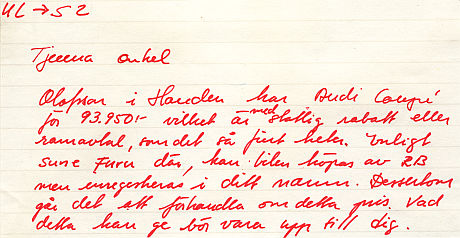 UL → S2
Tjeena onkel
Olofsson i Handen har Audi Coupé
för 93.950:- vilket är med statlig rabatt eller
ramavtal, som det så fint heter. Enligt
Sune Furn där, kan bilen köpas av RB
men enregistreras i ditt namn. Dessutom
går det att förhandla om detta pris. Vad
detta kan ge bör vara upp till dig.